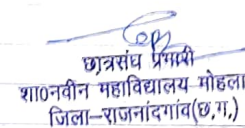 छात्रसंघ प्रभारी
शा0नवीन महाविद्यालय मोहला
जिला–राजनांदगांव(छ.ग.)